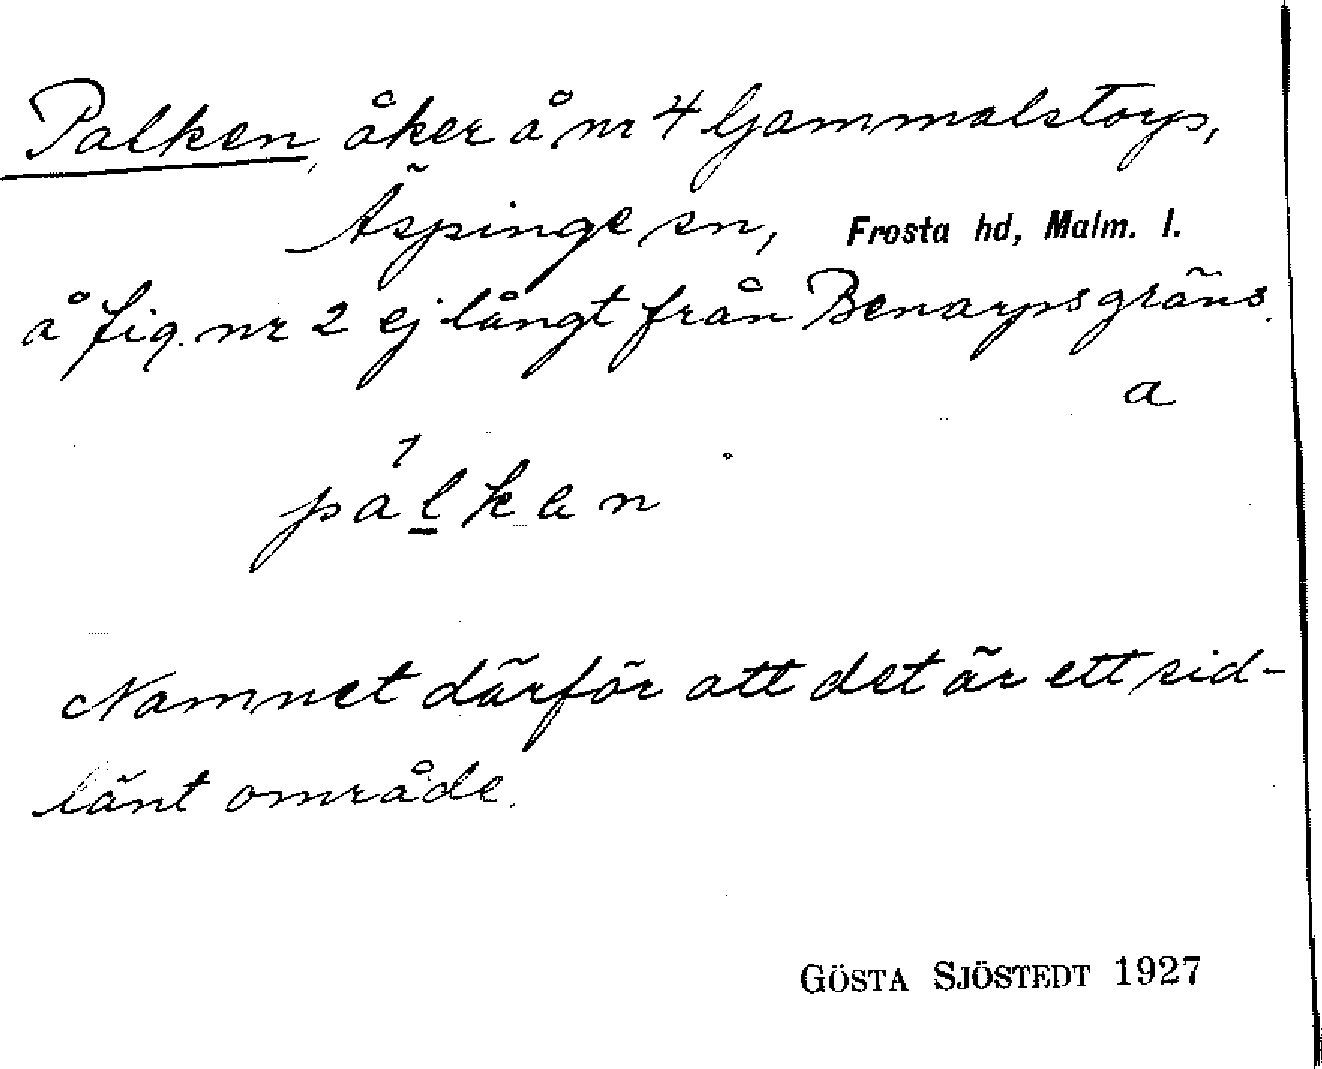 Palken, åker å nr 4 Gammalstorp,
Äspinge sn, Frosta hd, Malm. l.
å fig. nr 2 ej långt från Benarps gräns.
a
pálkan
Namnet därför att det är ett sid-
länt område.
GÖSTA SJÖSTEDT 1927